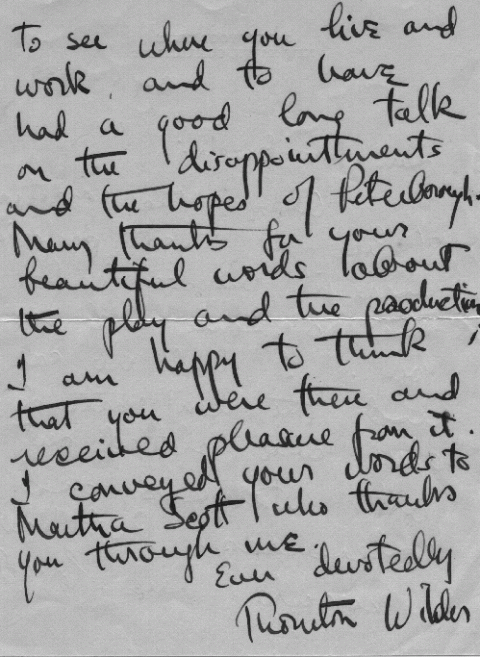 to see where you live and
work, and to have
had a good long talk
on the disappointments
and the hopes of Peterborough.
Many thanks for your
beautiful words about
the play and the production
I am happy to think
that you were there and
received pleasure from it.
I conveyed your words to
Martha Scott who thanks
you through me.
Ever devotedly
Thornton Wilder